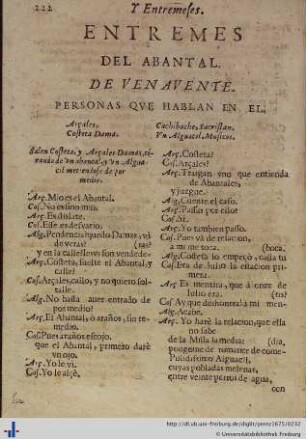 222 Y Entremeses.
ENTREMES
DEL ABANTAL.
DE VENAVENTE.
PERSONAS QVE HABLAN EN EL.
Arçales.
Costeta Dama.
Cachibache, Sacristan.
Vn Alguacil. Musicos.
Salen Costeta, y Arçales Damas,
rando de vn abental, y vn Algua
cil metiendose de por
medio.
Arç. Mio es el Abantal.
Cos. No es sino mio.
Arç. Es dislate.
Cos. Esse es desvario.
Alg. Pendencia hpanho Damas, và
de veras? (tas?
y en la calle
Arç. Costeta, suelte el Abantal, y
calle?
Cos. Arçales, callo, y no quiero sol-
talle.
Alg. No hallà auer entrado de
por medio?
Arç. El Abantal, ò araños, sin re-
medio.
Cos. Pues araños escojo,
que el Abantal, primero darè
vn ojo.
Arç. Yo le vi.
Cos. Yo le alçè.
Arç. Costeta?
Cos. Arçales?
Arç. Traigan vno que entienda
de Abantales,
y juzgue.
Alg. Cuente el caso.
Arç. Passo por ello?
Cos. Si.
Arç. Yo tambien passo.
Cos. Pues và de relacion,
a mi me toca. (boca.
Alg. Costeta lo empeçò, calla tu
Cos. Era de Iulio la estacion prime-
ra.
Arç. Es mentira, que à onze de
Iulio era. (tis?
Cos. Ay que deshonralda mi men-
Alg. Acabe.
Arç. Yo harè la relacion, que ella
no sabe
de la Missa la media: (dia,
pongome de romance de come-
Pulidissimo Alguacil,
cuyas pobladas melenas,
entre veinte permil de agua,
con
http://dl.ub.uni-freiburg.de/diglit/perez1675/0232
© Universitätsbibliothek Freiburg